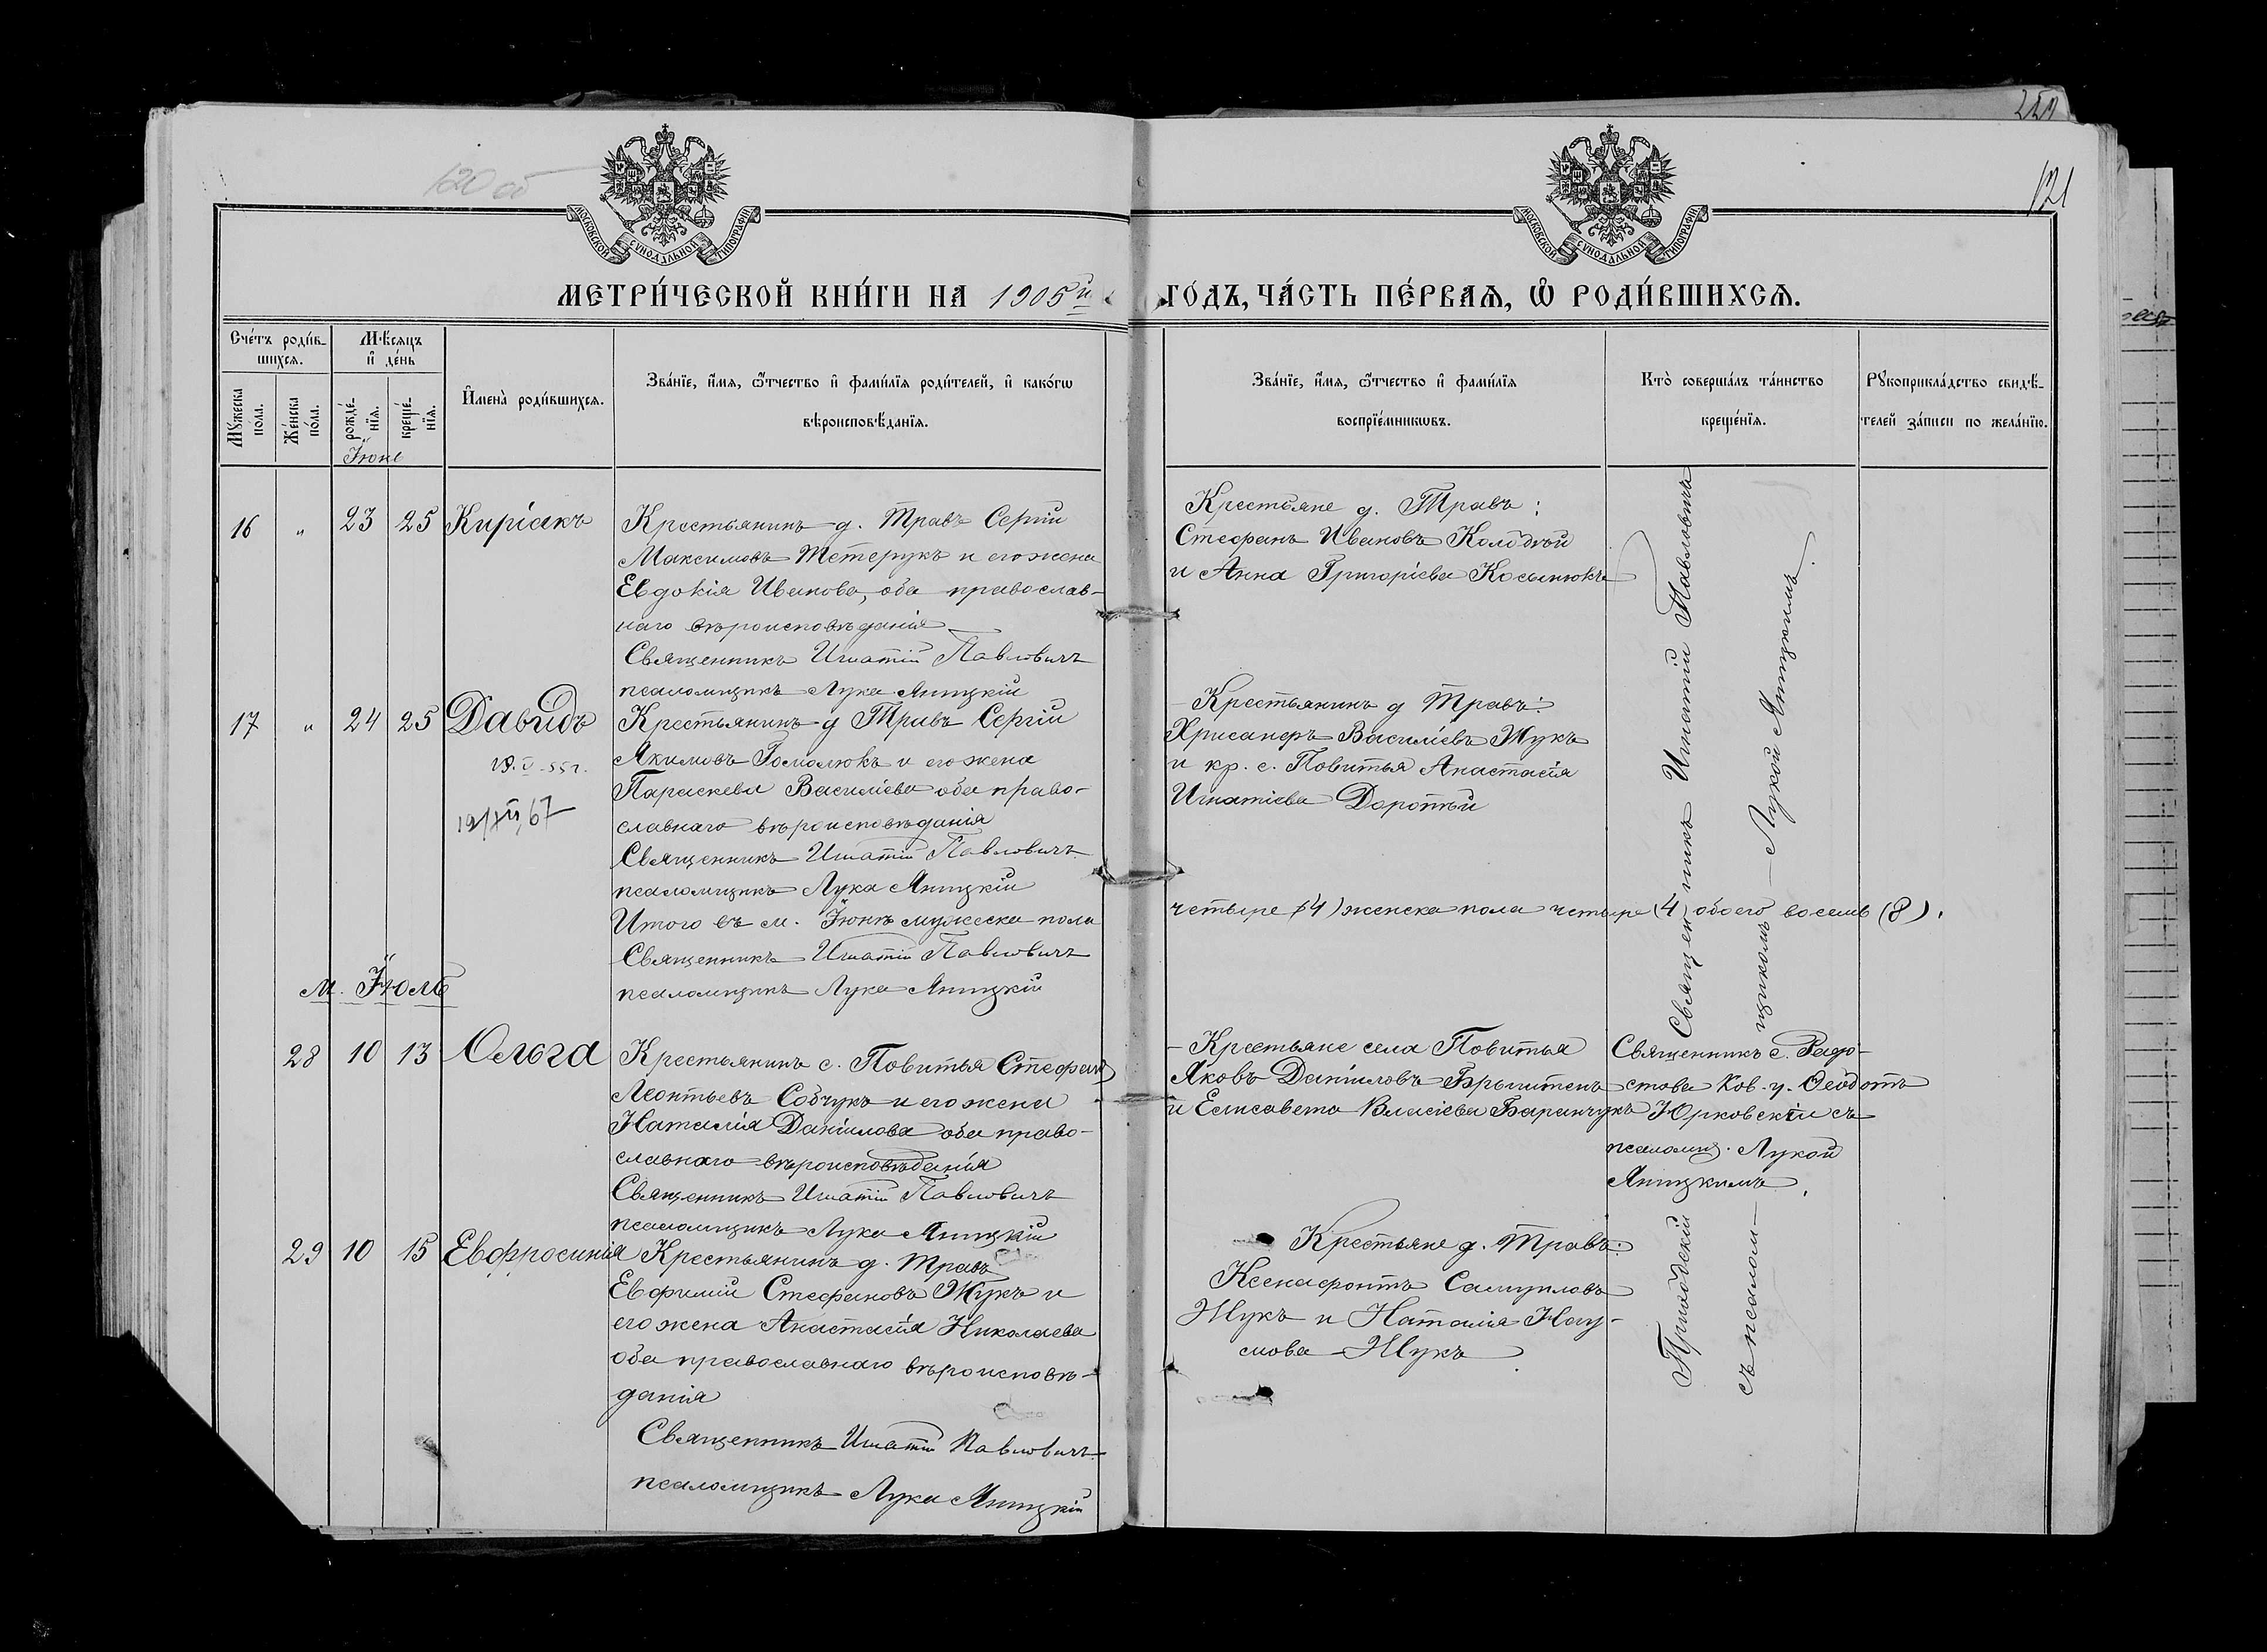 120 об
МОСКОВСКОЙ СѴНОДАЛЬНОЙ ТИПОГРАФІИ
МОСКОВСКОЙ СѴНОДАЛЬНОЙ ТИПОГРАФІИ
121
МЕТРИ́ЧЕСКОЙ КНИ́ГИ НА 1905й ГО́ДЪ, ЧА́СТЬ ПЕ́РВАѦ, Ѡ҆ РОДИ́ВШИХСѦ.
Сче́тъ роди́в-
шихсѧ.
Мꙋ́жеска по́ла.
Же́нска по́ла.
Мѣ́сяцъ
и҆ де́нь
рожде́-
нїѧ.
креще́-
нїѧ.
И҆мена̀ роди́вшихсѧ.
Зва́нїе, и҆́мѧ, ѻ҆́тчество и҆ фамѝлїѧ роди́телей, и҆ како́гѡ
вѣроисповѣ́данїѧ.
Зва́нїе, и҆́мѧ, ѻ҆́тчество и҆ фамѝлїѧ
воспрїе́мникѡвъ.
Кто̀ соверша́лъ та́инство
креще́нїѧ.
Рꙋкоприкла́дство свидѣ́-
телей за́писи по жела́нїю.
Іюне
16 " 23 25 Киріакъ
Крестьянинъ д. Травъ Сергій
Максимовъ Тетерукъ и его жена
Евдокія Иванова, оба православ-
наго вѣроисповѣданія
Священникъ Игнатій Павловичъ
псаломщикъ Лука Яницкій
Крестьяне д. Травъ:
Стефанъ Ивановъ Колодѣй
и Анна Григоріева Косынюкъ
17 " 24 25 Давидъ
19/XII 67
Крестьянинъ д Травъ Сергій
Якимовъ Гомолюкъ и его жена
Параскева Василіева оба право-
славнаго вѣроисповѣданія
Священникъ Игнатій Павловичъ
псаломщикъ Лука Яницкій
Крестьянинъ д Травъ:
Хрисанфъ Василіевъ Жукъ
и кр. с. Повитья Анастасія
Игнатіева Доротѣй
Итого въ м. Іюнѣ мужеска пола
четыре (4) женска пола четыре (4) обоего восемь (8).
Священникъ Игнатій Павловичъ
псаломщикъ Лука Яницкій
м. Іюль
28 10 13 Ольга
Крестьянинъ с. Повитья Стефанъ
Леонтьевъ Собчукъ и его жена
Наталія Даніилова оба право-
славнаго вѣроисповѣданія
Священникъ Игнатій Павловичъ
псаломщикъ Лука Яницкій
Крестьяне села Повитья
Яковъ Даніиловъ
и Елисавета Власіева Баранчукъ
Священникъ с. Радо-
стова Ков. у. Ѳеодотъ
Юрковскій съ
псаломщ. Лукой
Яницкимъ
29 10 15 Евфросинія
Крестьянинъ д. Травъ
Евфимій Стефановъ Жукъ и
его жена Анастасія Николаева
оба православнаго вѣроисповѣ-
данія
Священникъ Игнатій Павловичъ
псаломщикъ Лука Яницкій
Крестьяне д. Травъ:
Ксенафонтъ Самуиловъ
Жукъ и Наталія Нау-
мова Жукъ
Приходскій Священникъ Игнатій Павловичъ
съ псалом-щикомъ Лукой Яницкимъ.